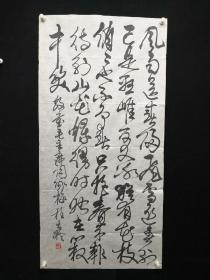 风雨送春归飞雪迎春到
已是悬崖百丈冰犹有花枝
俏俏也不争春只把春来报
待到山花烂漫时她在丛
中笑